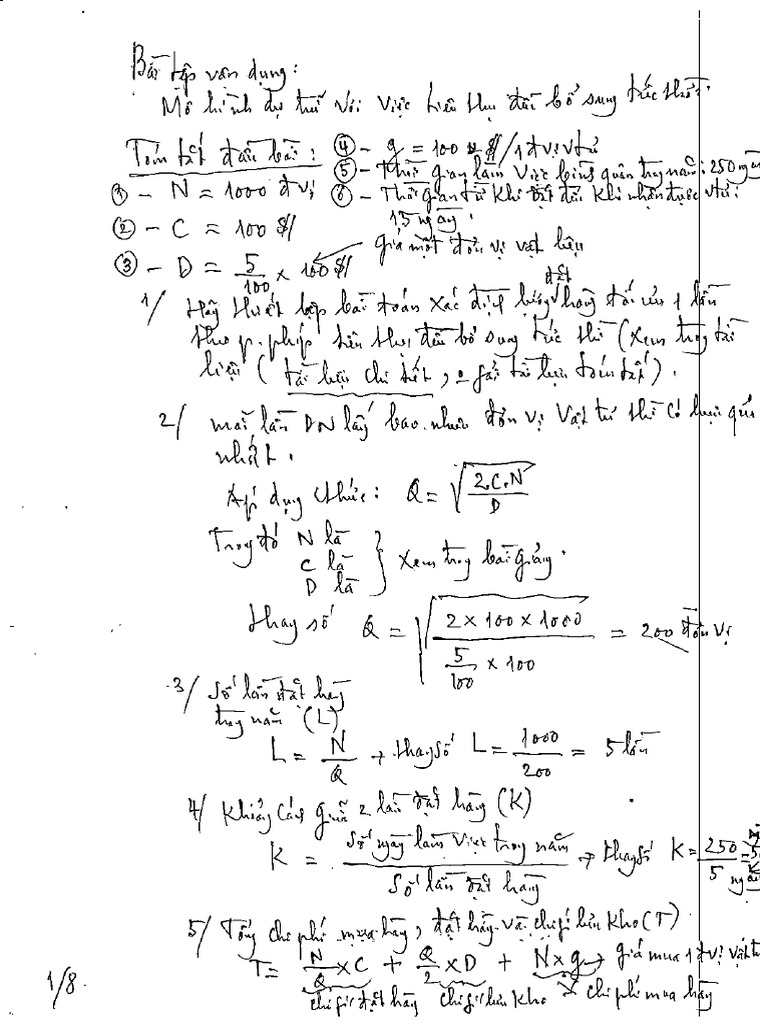 Bài tập vận dụng:
Mô hình dự trữ với việc tiêu thụ đều bổ sung tức thời.
Tóm tắt đầu bài:
① - N = 1000 đ.vị
② - C = 100 $
③ - D = 5/100 × 100 $
giá một đơn vị vật liệu
④ - g = 100 $/1 đ.vị v.tư
⑤ - Thời gian làm việc bình quân trong năm: 250 ngày
⑥ - Thời gian từ khi bắt đầu khi nhận được v.tư:
15 ngày.
1/ Hãy thiết lập bài toán xác định lượng đặt hàng tối ưu 1 lần
theo p.pháp tiêu thụ đều bổ sung tức thì (xem trong tài
liệu (tài liệu chi tiết, tài liệu tóm tắt).
2/ mỗi lần DN lấy bao nhiêu đơn vị vật tư thì có hiệu quả
nhất.
Áp dụng c/thức: Q = √(2.C.N / D)
Trong đó N là
C là
D là
} xem trong bài giảng.
thay số Q = √(2 × 100 × 1000 / (5/100 × 100)) = 200 đơn vị
3/ Số lần đặt hàng
trong năm (L)
L = N/Q → thay số L = 1000/200 = 5 lần
4/ Khoảng cách giữa 2 lần đặt hàng (K)
K = Số ngày làm việc trong năm / Số lần đặt hàng → thay số K = 250/5 = 50 ngày
5/ Tổng chi phí mua hàng, đặt hàng và chi phí lưu kho (T)
T = N/Q × C + Q/2 × D + N × g → giá mua 1 đ.vị vật tư
chi phí đặt hàng chi phí lưu kho chi phí mua hàng
1/8.